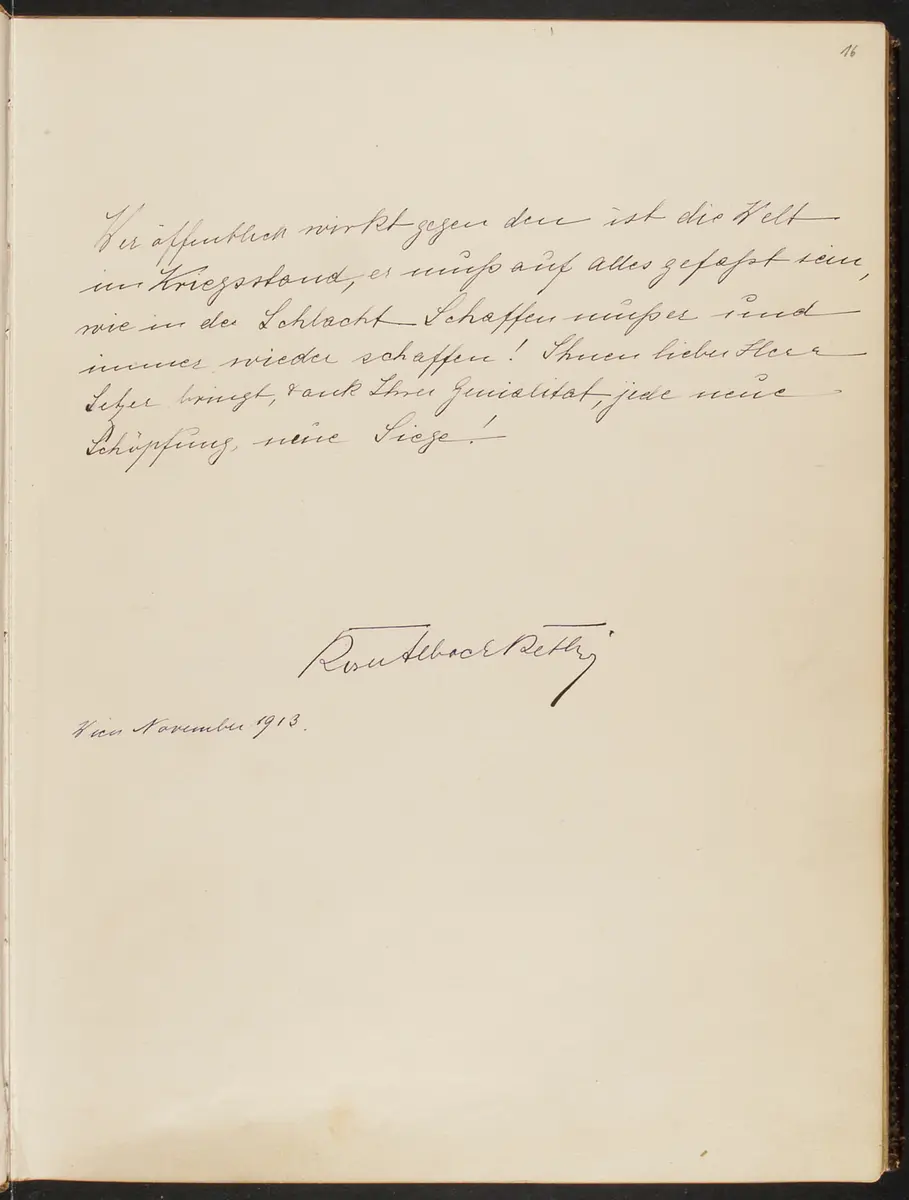 16
Wer öffentlich wirkt gegen den ist die Welt
im Kriegsstand, er muß auf alles gefaßt sein,
wie in der Schlacht Schaffen muß er und
immer wieder schaffen! Ihnen lieber Herr
Setzer bringt, dank Ihrer Genialität, jede neue
Schöpfung, neue Siege!
Rosa Albach Retty
Wien November 1913.